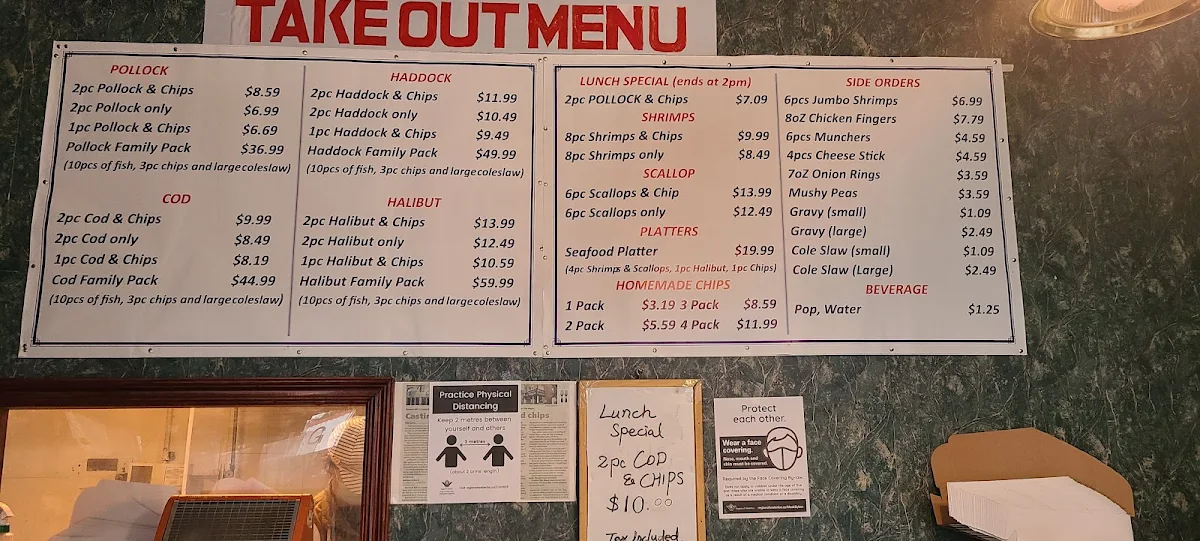 TAKE OUT MENU
POLLOCK
2pc Pollock & Chips $8.59
2pc Pollock only $6.99
1pc Pollock & Chips $6.69
Pollock Family Pack $36.99
(10pcs of fish, 3pc chips and large coleslaw)
COD
2pc Cod & Chips $9.99
2pc Cod only $8.49
1pc Cod & Chips $8.19
Cod Family Pack $44.99
(10pcs of fish, 3pc chips and large coleslaw)
HADDOCK
2pc Haddock & Chips $11.99
2pc Haddock only $10.49
1pc Haddock & Chips $9.49
Haddock Family Pack $49.99
(10pcs of fish, 3pc chips and large coleslaw)
HALIBUT
2pc Halibut & Chips $13.99
2pc Halibut only $12.49
1pc Halibut & Chips $10.59
Halibut Family Pack $59.99
(10pcs of fish, 3pc chips and large coleslaw)
LUNCH SPECIAL (ends at 2pm)
2pc POLLOCK & Chips $7.09
SHRIMPS
8pc Shrimps & Chips $9.99
8pc Shrimps only $8.49
SCALLOP
6pc Scallops & Chip $13.99
6pc Scallops only $12.49
PLATTERS
Seafood Platter $19.99
(4pc Shrimps & Scallops, 1pc Halibut, 1pc Chips)
HOMEMADE CHIPS
1 Pack $3.19 3 Pack $8.59
2 Pack $5.59 4 Pack $11.99
SIDE ORDERS
6pcs Jumbo Shrimps $6.99
8oZ Chicken Fingers $7.79
6pcs Munchers $4.59
4pcs Cheese Stick $4.59
7oZ Onion Rings $3.59
Mushy Peas $3.59
Gravy (small) $1.09
Gravy (large) $2.49
Cole Slaw (small) $1.09
Cole Slaw (Large) $2.49
BEVERAGE
Pop, Water $1.25
Practice Physical
Distancing
Keep 2 metres between
yourself and others
2 metres
(about 2 arms length)
d chips
Lunch
Special
2pc COD
& CHIPS
$10.00
Tax included
Protect
each other.
Wear a face
covering.
Nose, mouth and
chin must be covered.
Required by the Face Covering By-law.